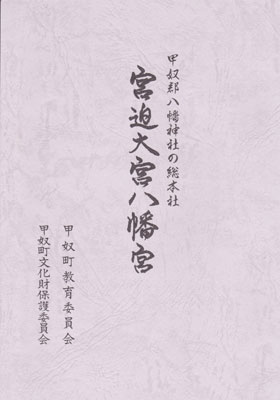 甲奴郡八幡神社の総本社
宮迫大宮八幡宮
甲奴町教育委員会
甲奴町文化財保護委員会